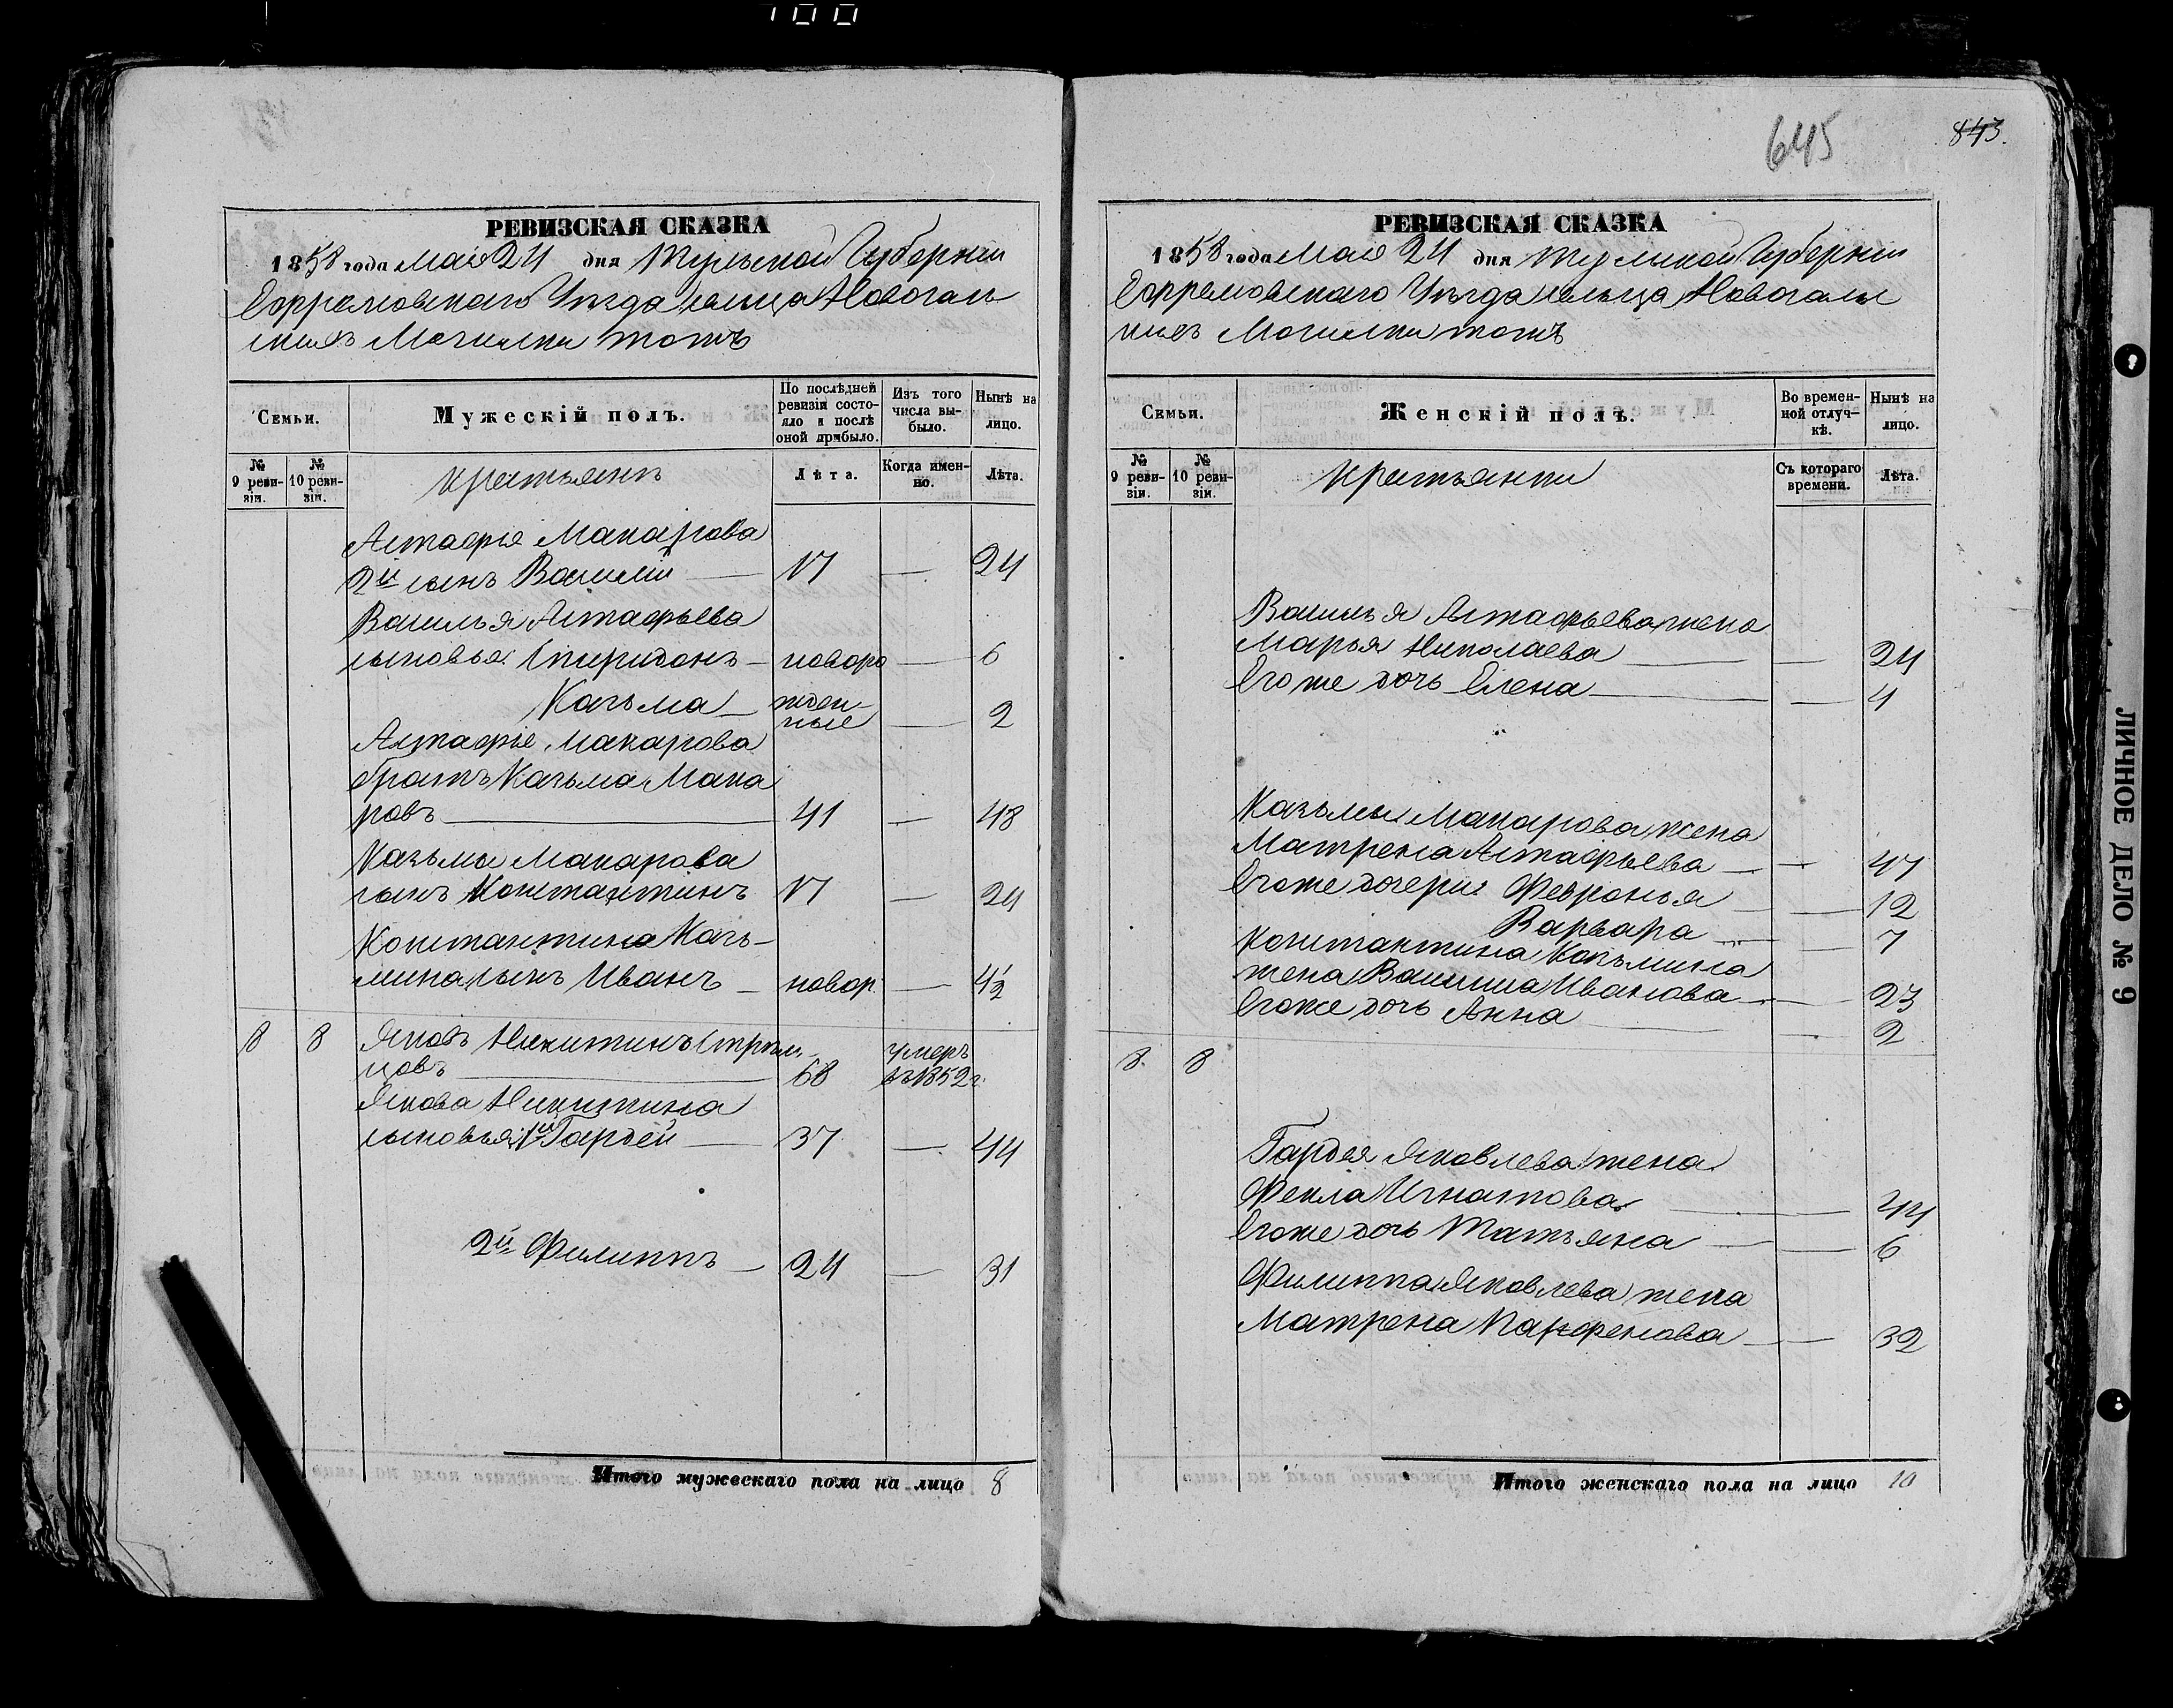 100
645
843.
РЕВИЗСКАЯ СКАЗКА
1858 года мая 24 дня Тульской Губернии
Ефремовскаго Уѣзда сельца Новогаль
Могилки тожъ
Семьи.
Мужескій полъ.
По послѣдней ревизіи состояло и послѣ оной прибыло.
Изъ того числа выбыло.
Нынѣ на лицо.
№ 9 ревизіи.
№ 10 ревизіи.
крестьянъ
Лѣта.
Когда именно.
Лѣта.
Астафія Макарова
2й сынъ Василій — 17 — 24
Василья Астафьева
сыновья Спиридонъ — новоро — 6
Казьма — жден-
ные — 2
Астафія Макарова
братъ Казьма Мака
ровъ — 41 — 48
Казьмы Макарова
сынъ Константинъ 17 — 24
Константина Казь-
мина сынъ Иванъ — новор. — 4½
8 8 Яковъ Никитинъ Стрѣль-
цовъ — 68 умеръ въ 1852 г.
Якова Никитина
сыновья 1й Гардей — 37 — 44
2й Филиппъ — 24 — 31
Итого мужескаго пола на лицо 8
РЕВИЗСКАЯ СКАЗКА
1858 года Мая 24 дня Тульской Губернии
Ефремовскаго Уѣзда сельца Новогаль
Могилки тожъ
Семьи.
Женскій полъ.
Во временной отлучкѣ.
Нынѣ на лицо.
№ 9 ревизіи.
№ 10 ревизіи.
крестьянки
Съ котораго времени.
Лѣта.
Василья Астафьева жена
Марья Николаева — — 24
Его же дочь Елена — — 4
Казьмы Макарова жена
Матрена Астафьева — — 47
Его же дочери Февронья — — 12
Варвара — — 7
Константина Козьмина
жена Васииса Иванова — — 23
Его же дочь Анна — — 2
8. 8
Гардея Яковлева жена
Фекла Игнатова — — 44
Его же дочь Татьяна — — 6
Филиппа Яковлева жена
Матрена Парфенова — — 32
Итого женскаго пола на лицо 10
ЛИЧНОЕ ДЕЛО № 9